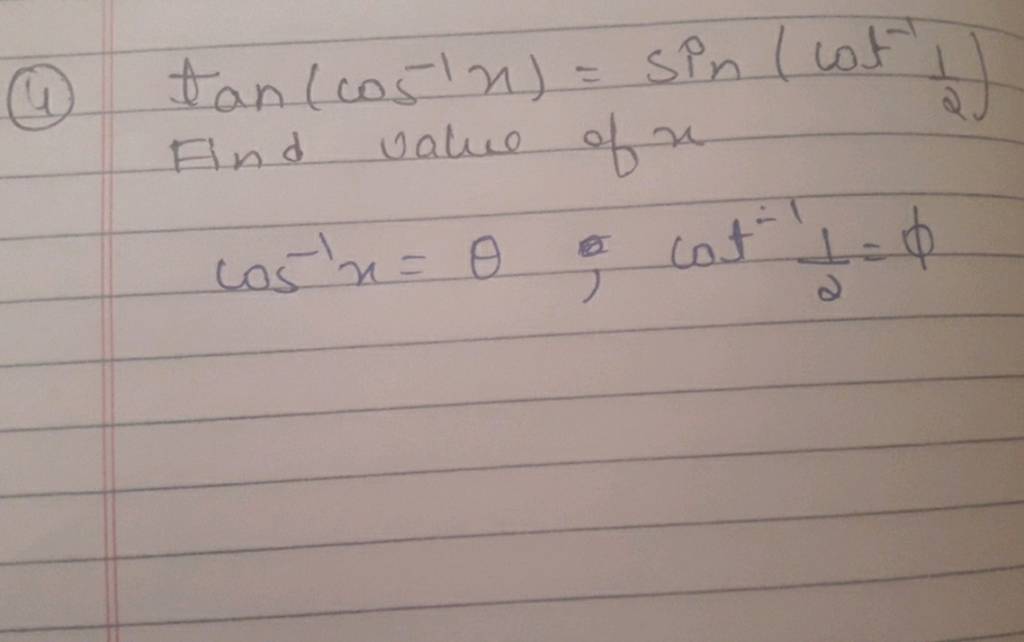 ④ tan(cos⁻¹x) = sin(cot⁻¹ 1/2)
Find value of x
cos⁻¹x = θ ; cot⁻¹ 1/2 = ϕ